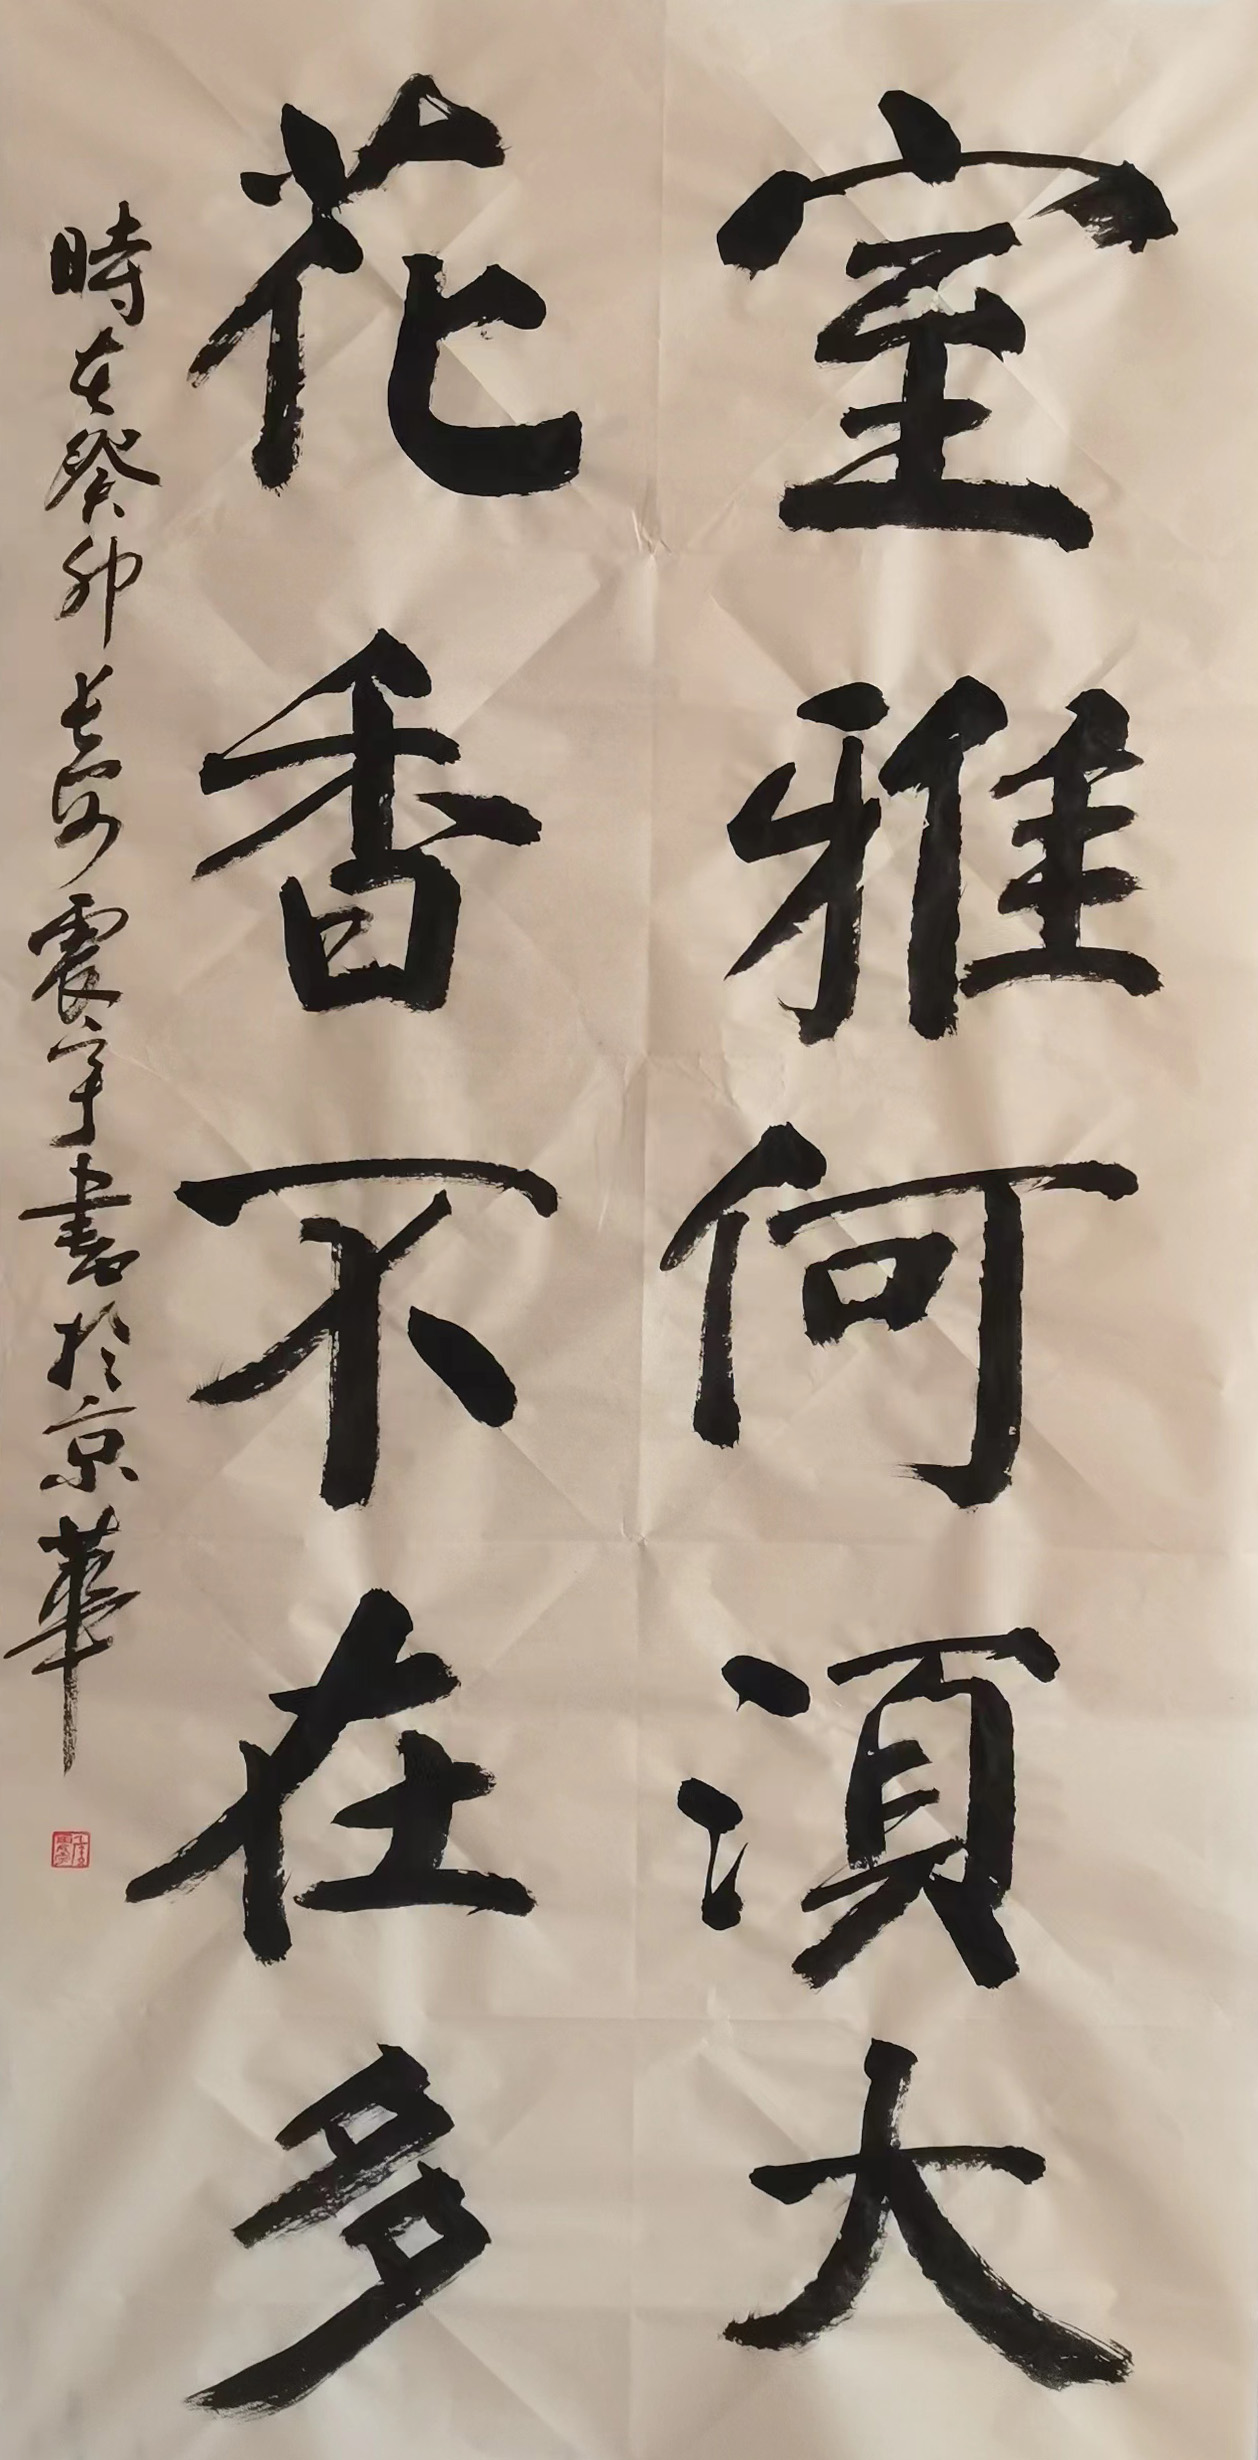 室雅何須大
花香不在多
時在癸卯長夏震宇書於京華